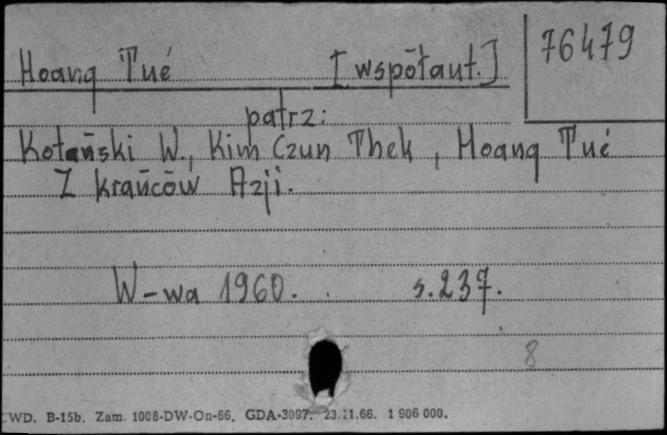 Hoang Tué [współaut.]
76479
patrz:
Kotański W., Kim Czun Thek, Hoang Tué
Z krańców Azji.
W-wa 1960. s. 237.
8
WD. B-15b. Zam. 1008-DW-On-66. GDA-3097. 23.11.66. 1 906 000.